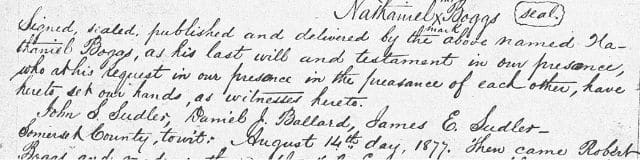 Nathaniel X Boggs seal.
mark
Signed, sealed, published and delivered by the above named Na-
thaniel Boggs, as his last will and testament in our presence,
who at his request in our presence in the preasance of each other, have
hereto set our hands, as witnesses hereto.
John S. Sudler, Daniel J. Ballard, James E. Sudler-
Somerset County, towit: August 14th day, 1877. Then came Robert
Boggs and